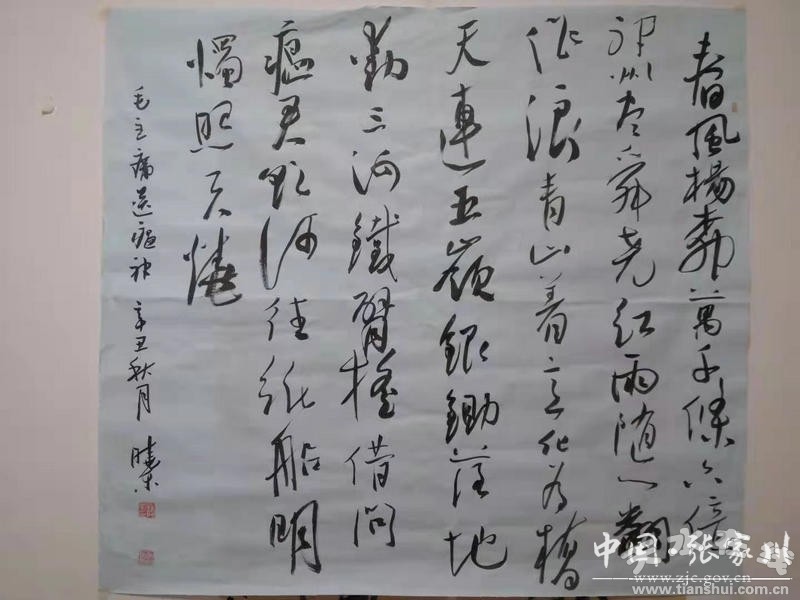 春風楊柳萬千條六億
神州尽舜尧红雨随心翻
作浪青山着意化为橋
天連五嶺銀鋤落地
動三河鐵臂搖借問
瘟君欲何往紙船明
燭照天燒
毛主席送瘟神 辛丑秋月
中国·张家川
www.zjc.gov.cn
www.tianshui.com.cn